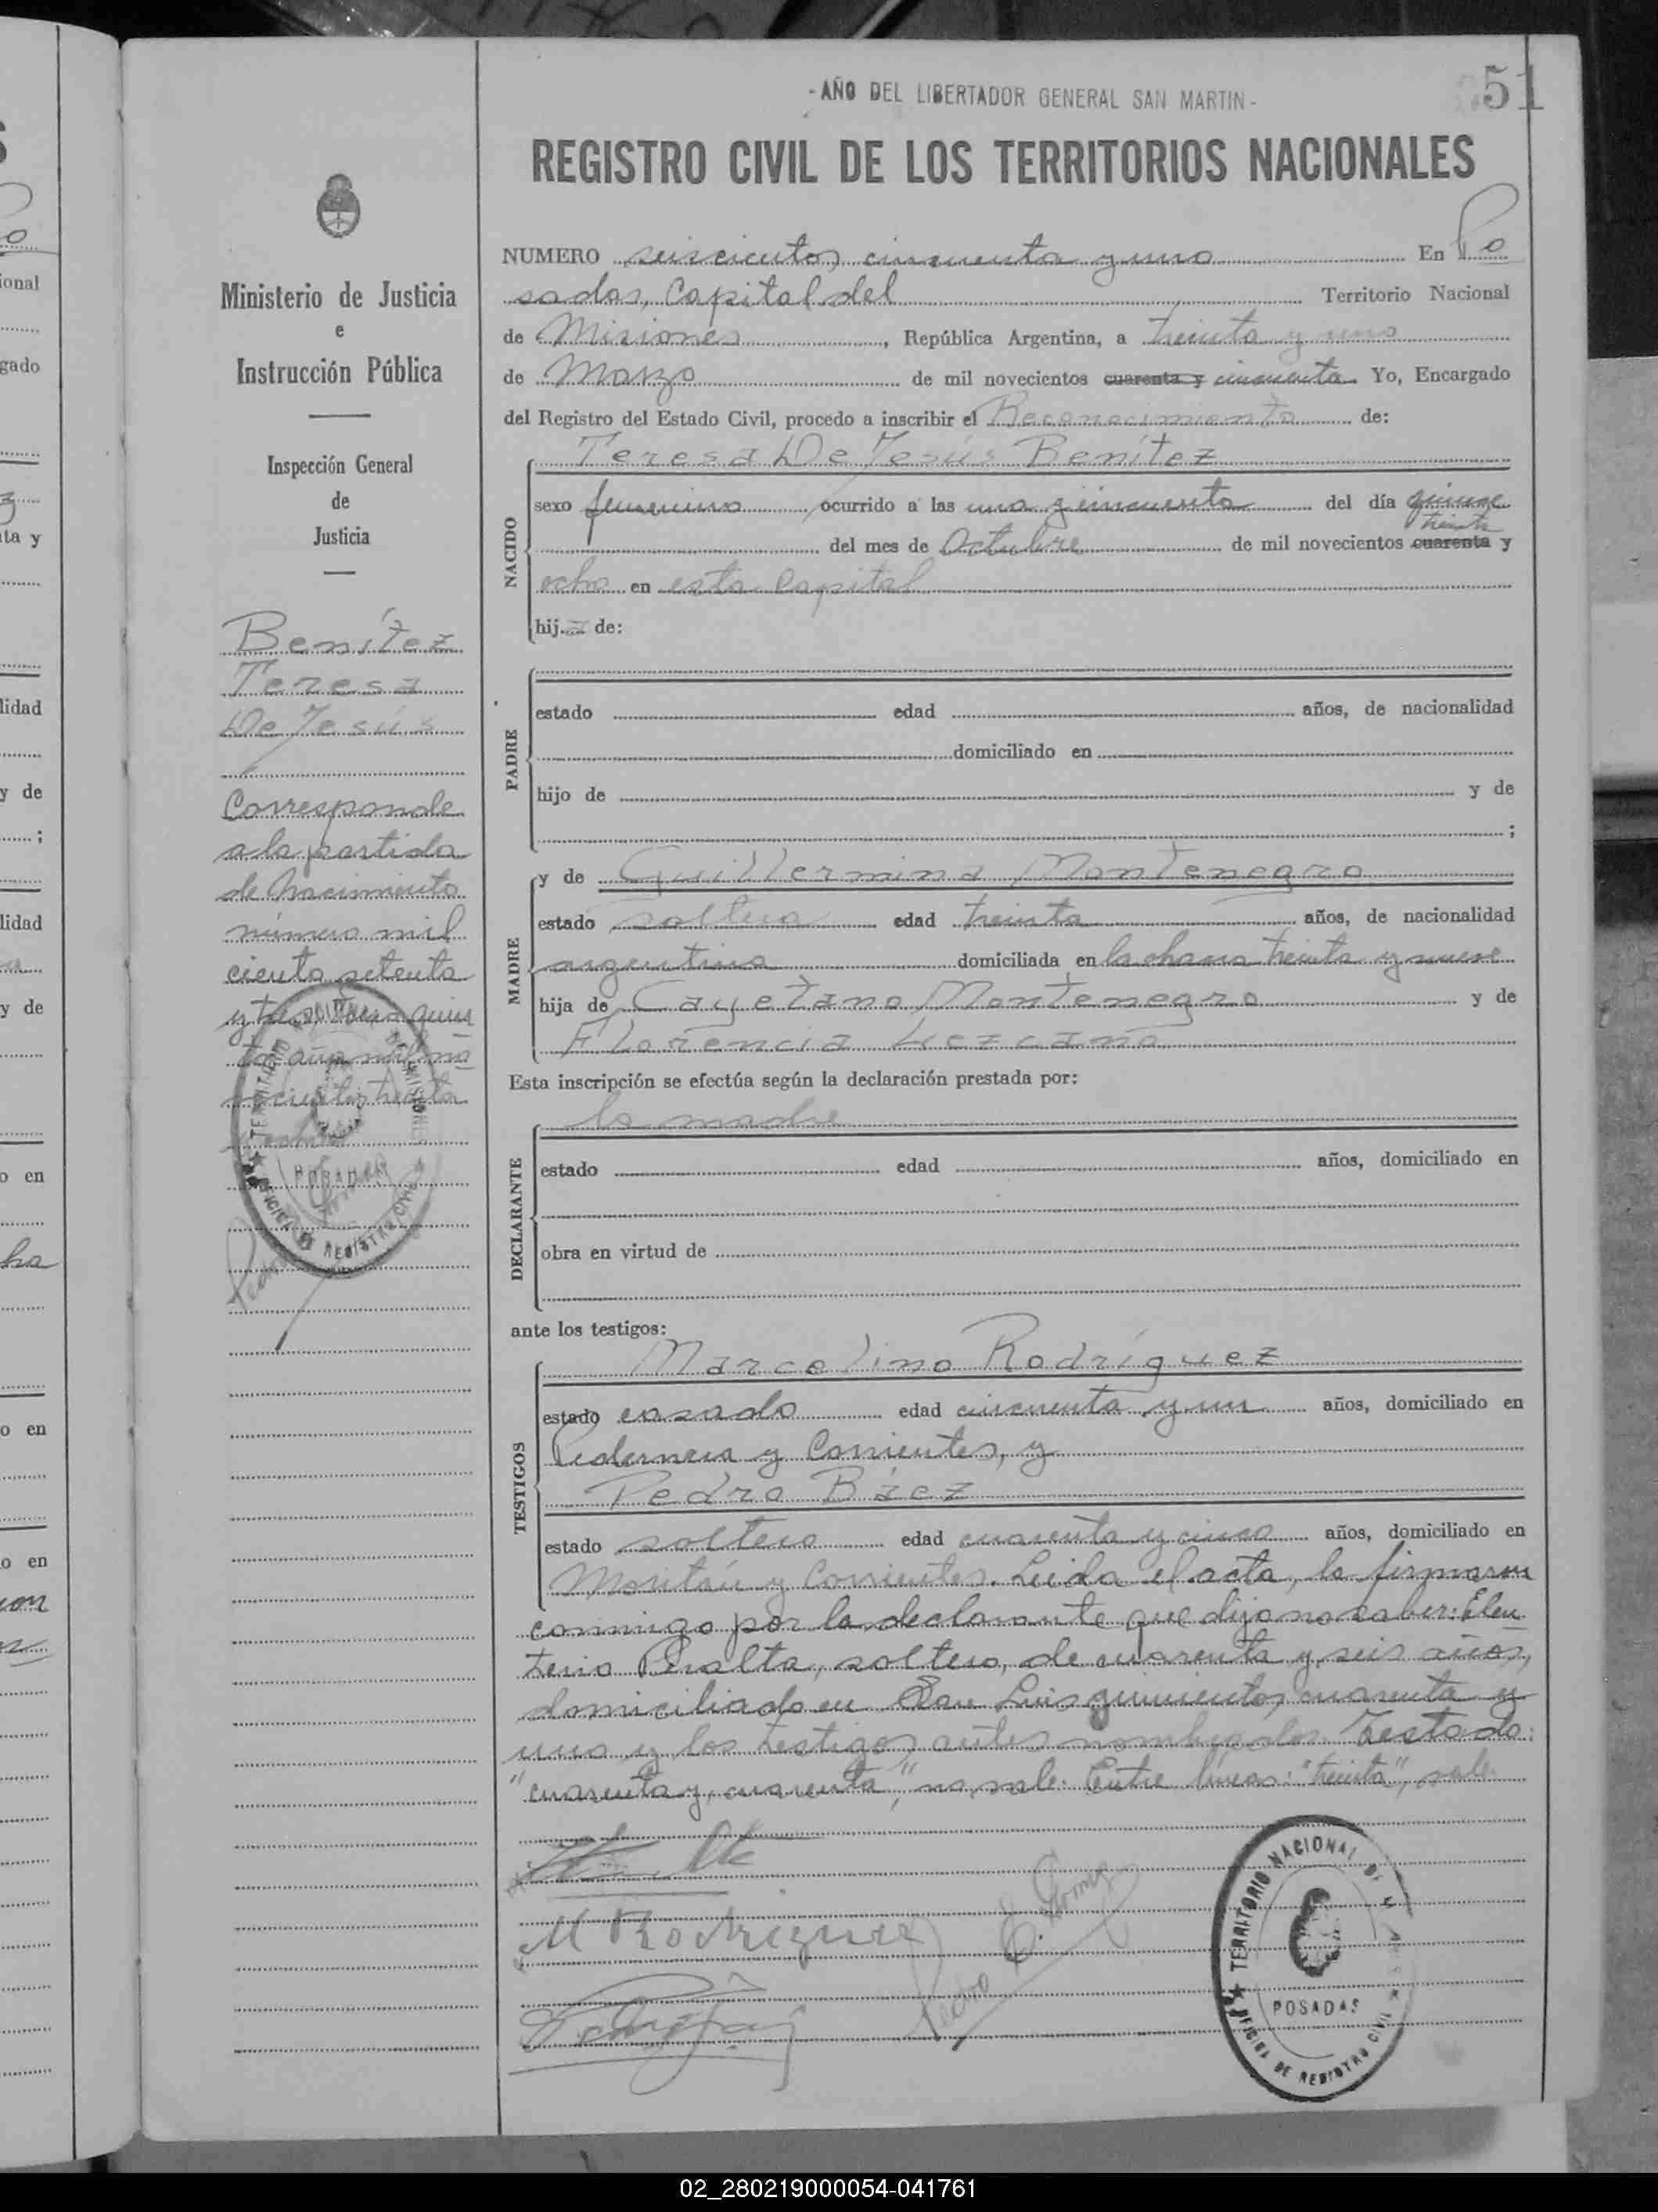 -AÑO DEL LIBERTADOR GENERAL SAN MARTIN-
51
REGISTRO CIVIL DE LOS TERRITORIOS NACIONALES
Ministerio de Justicia
e
Instrucción Pública
Inspección General
de
Justicia
Benítez
Teresa
De Jesús
Corresponde
a la partida
de nacimiento
número mil
ciento setenta
NUMERO seiscientos cincuenta y uno En Po
sadas, Capital del Territorio Nacional
de Misiones, República Argentina, a treinta y uno
de Marzo de mil novecientos cuarenta y cincuenta Yo, Encargado
del Registro del Estado Civil, procedo a inscribir el Reconocimiento de:
Teresa De Jesús Benítez
NACIDO
sexo femenino ocurrido a las una y cincuenta del día quince
treinta
del mes de Octubre de mil novecientos cuarenta y
ocho en esta Capital
hij a de:
PADRE
estado edad años, de nacionalidad
domiciliado en
hijo de y de
;
MADRE
y de Guillermina Montenegro
estado soltera edad treinta años, de nacionalidad
argentina domiciliada en la chacra treinta y nueve
hija de Cayetano Montenegro y de
Florencia Lezcano
Esta inscripción se efectúa según la declaración prestada por:
la madre
DECLARANTE
estado edad años, domiciliado en
obra en virtud de
ante los testigos:
TESTIGOS
Marcelino Rodríguez
estado casado edad cincuenta y un años, domiciliado en
Pedernera y Corrientes, y
Pedro Báez
estado soltero edad cuarenta y cinco años, domiciliado en
y Corrientes. Leida el acta, la firmaron
conmigo por la declarante que dijo no saber: Eleu
terio Peralta, soltero, de cuarenta y seis años,
domiciliado en San Luis quinientos cuarenta y
uno y los testigos antes nombrados. Testado:
"cuarenta y, cuarenta", no vale. Entre líneas: "treinta", vale.
M Rodriguez
Pedro E. Gomez
TERRITORIO NACIONAL DE
POSADAS
OFICINA DE REGISTRO CIVIL
02_280219000054-041761